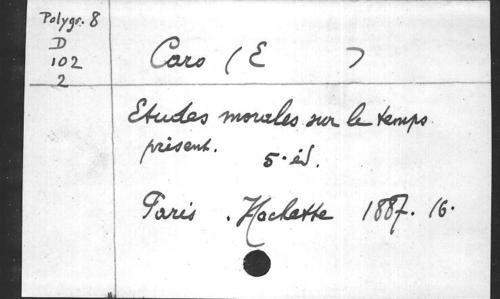 Polygr. 8
D
102
2
Caro (E )
Etudes morales sur le temps
présent. 5. éd.
Paris. Hachette 1887. 16.